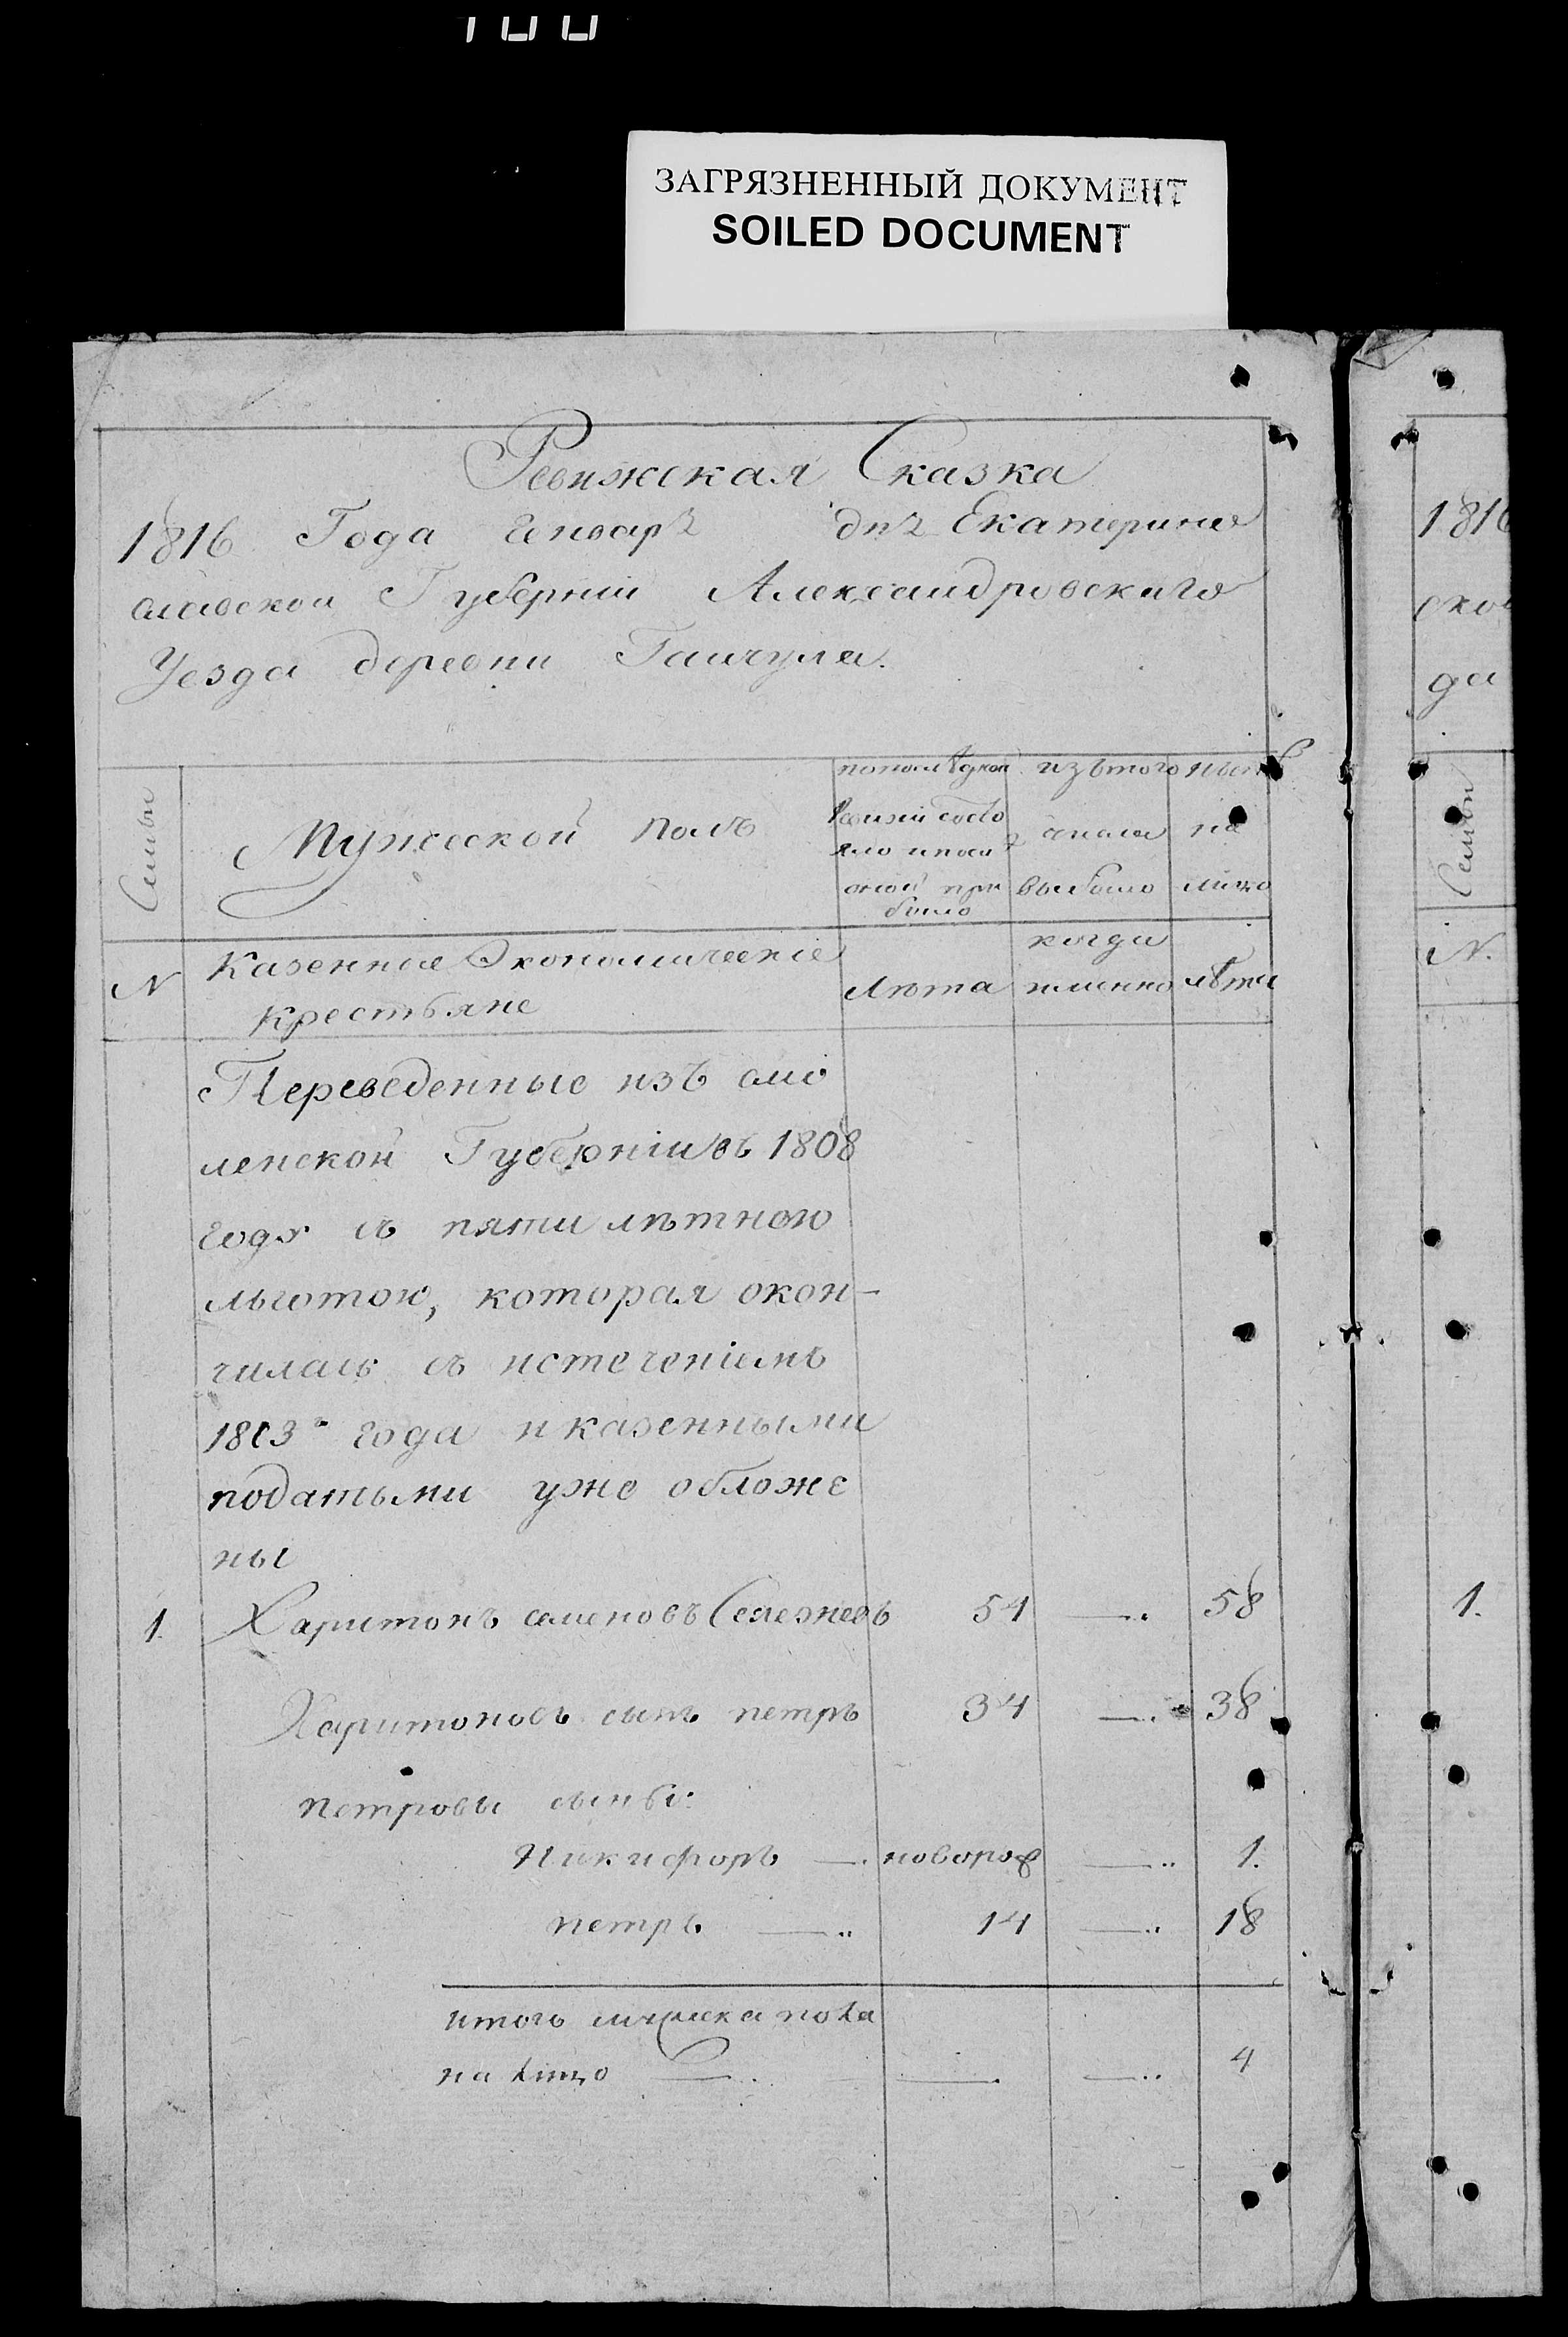 ЗАГРЯЗНЕННЫЙ ДОКУМЕНТ
SOILED DOCUMENT
Ревижская Сказка
1816 Года Генваря дня Екатерино
славской Губерніи Александровскаго
Уезда деревни Гайчула.
Семьи
Мужеской полъ
попослѣдной ревизіи состо яло и после оной при было
изътого числа выбыло
нынѣ на лицо
N
Казенные Экономическіе
крестьяне
Лѣта
когда именно
лѣта
Переведенные изъ смо
ленской Губерніи въ 1808
годѫ съ пяти лѣтною
льготою, которая окон-
чилась съ истеченіемъ
1813го года и казенными
податьми уже обложе
ны
1. Харитонъ семеновъ Селезневъ 54 —.. 58
Харитоновъ сынъ петръ 34 —. 38
петровы сыны:
Никифоръ —. новорож —.. 1.
петръ —.. 14 —.. 18
итого мужеска пола
на лицо —.. —. —.. 4
1816
ско
да
Семьи
N.
1.